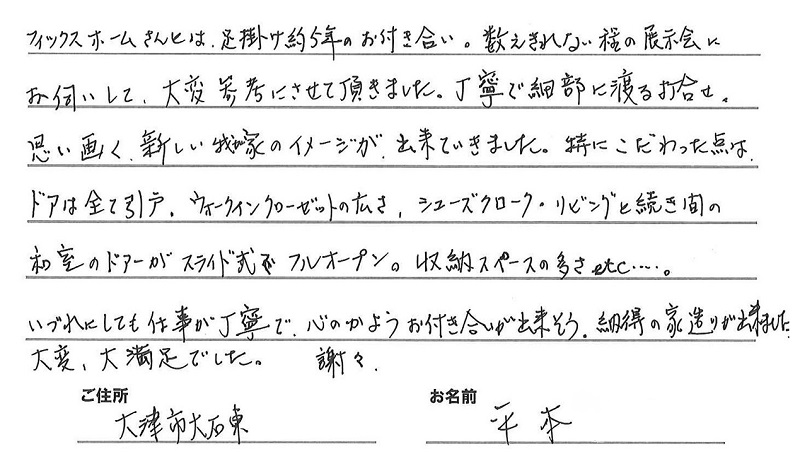 フィックスホームさんとは、足掛け約5年のお付き合い。数えきれない程の展示会に
お伺いして、大変参考にさせて頂きました。丁寧で細部に渡る打合せ。
思い画く、新しい我家のイメージが、出来ていきました。特にこだわった点は、
ドアは全て引戸、ウォークインクローゼットの広さ、シューズクローク・リビングと続き間の
和室のドアーがスライド式でフルオープン。収納スペースの多さetc……。
いづれにしても仕事が丁寧で、心のかようお付き合いが出来そう、納得の家造りが出来ました
大変、大満足でした。 謝々、
ご住所 お名前
大津市大石東 平本